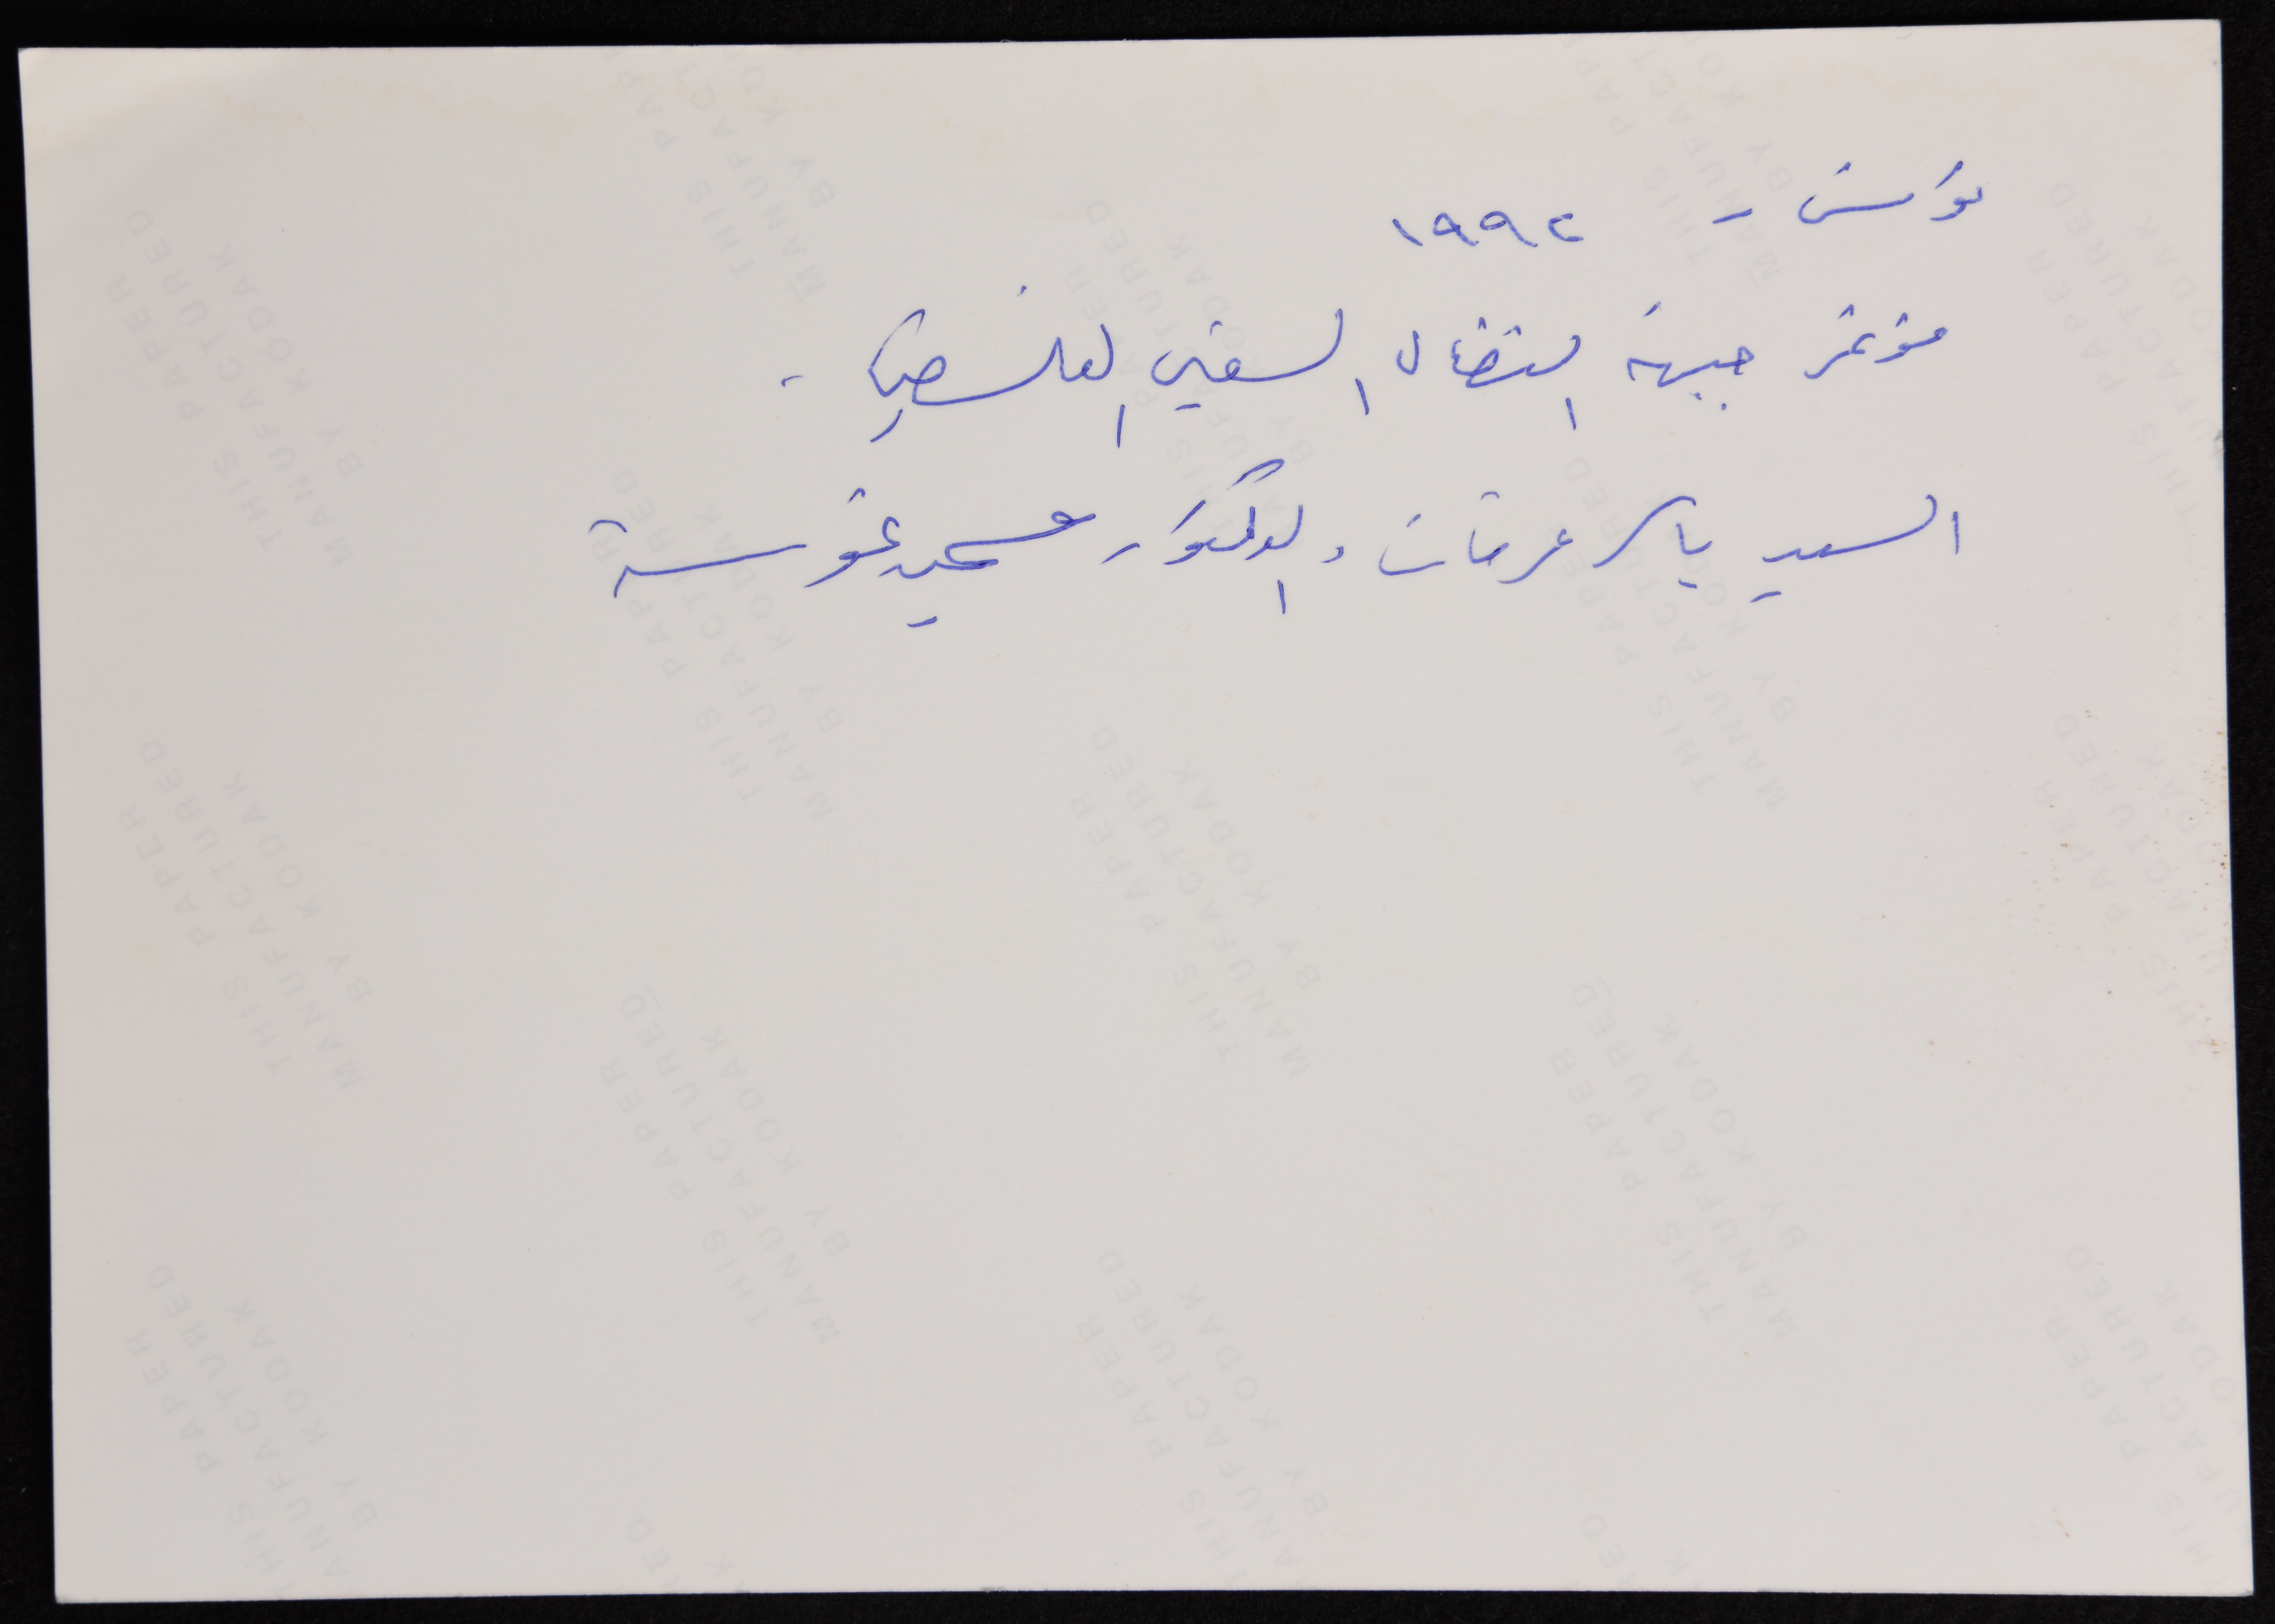 تونس - ١٩٩٢
مؤتمر جبهة النضال الشعبي الفلسطيني -
السيد ياسر عرفات، الدكتور سمير غوشة
THIS PAPER
MANUFACTURED
BY KODAK